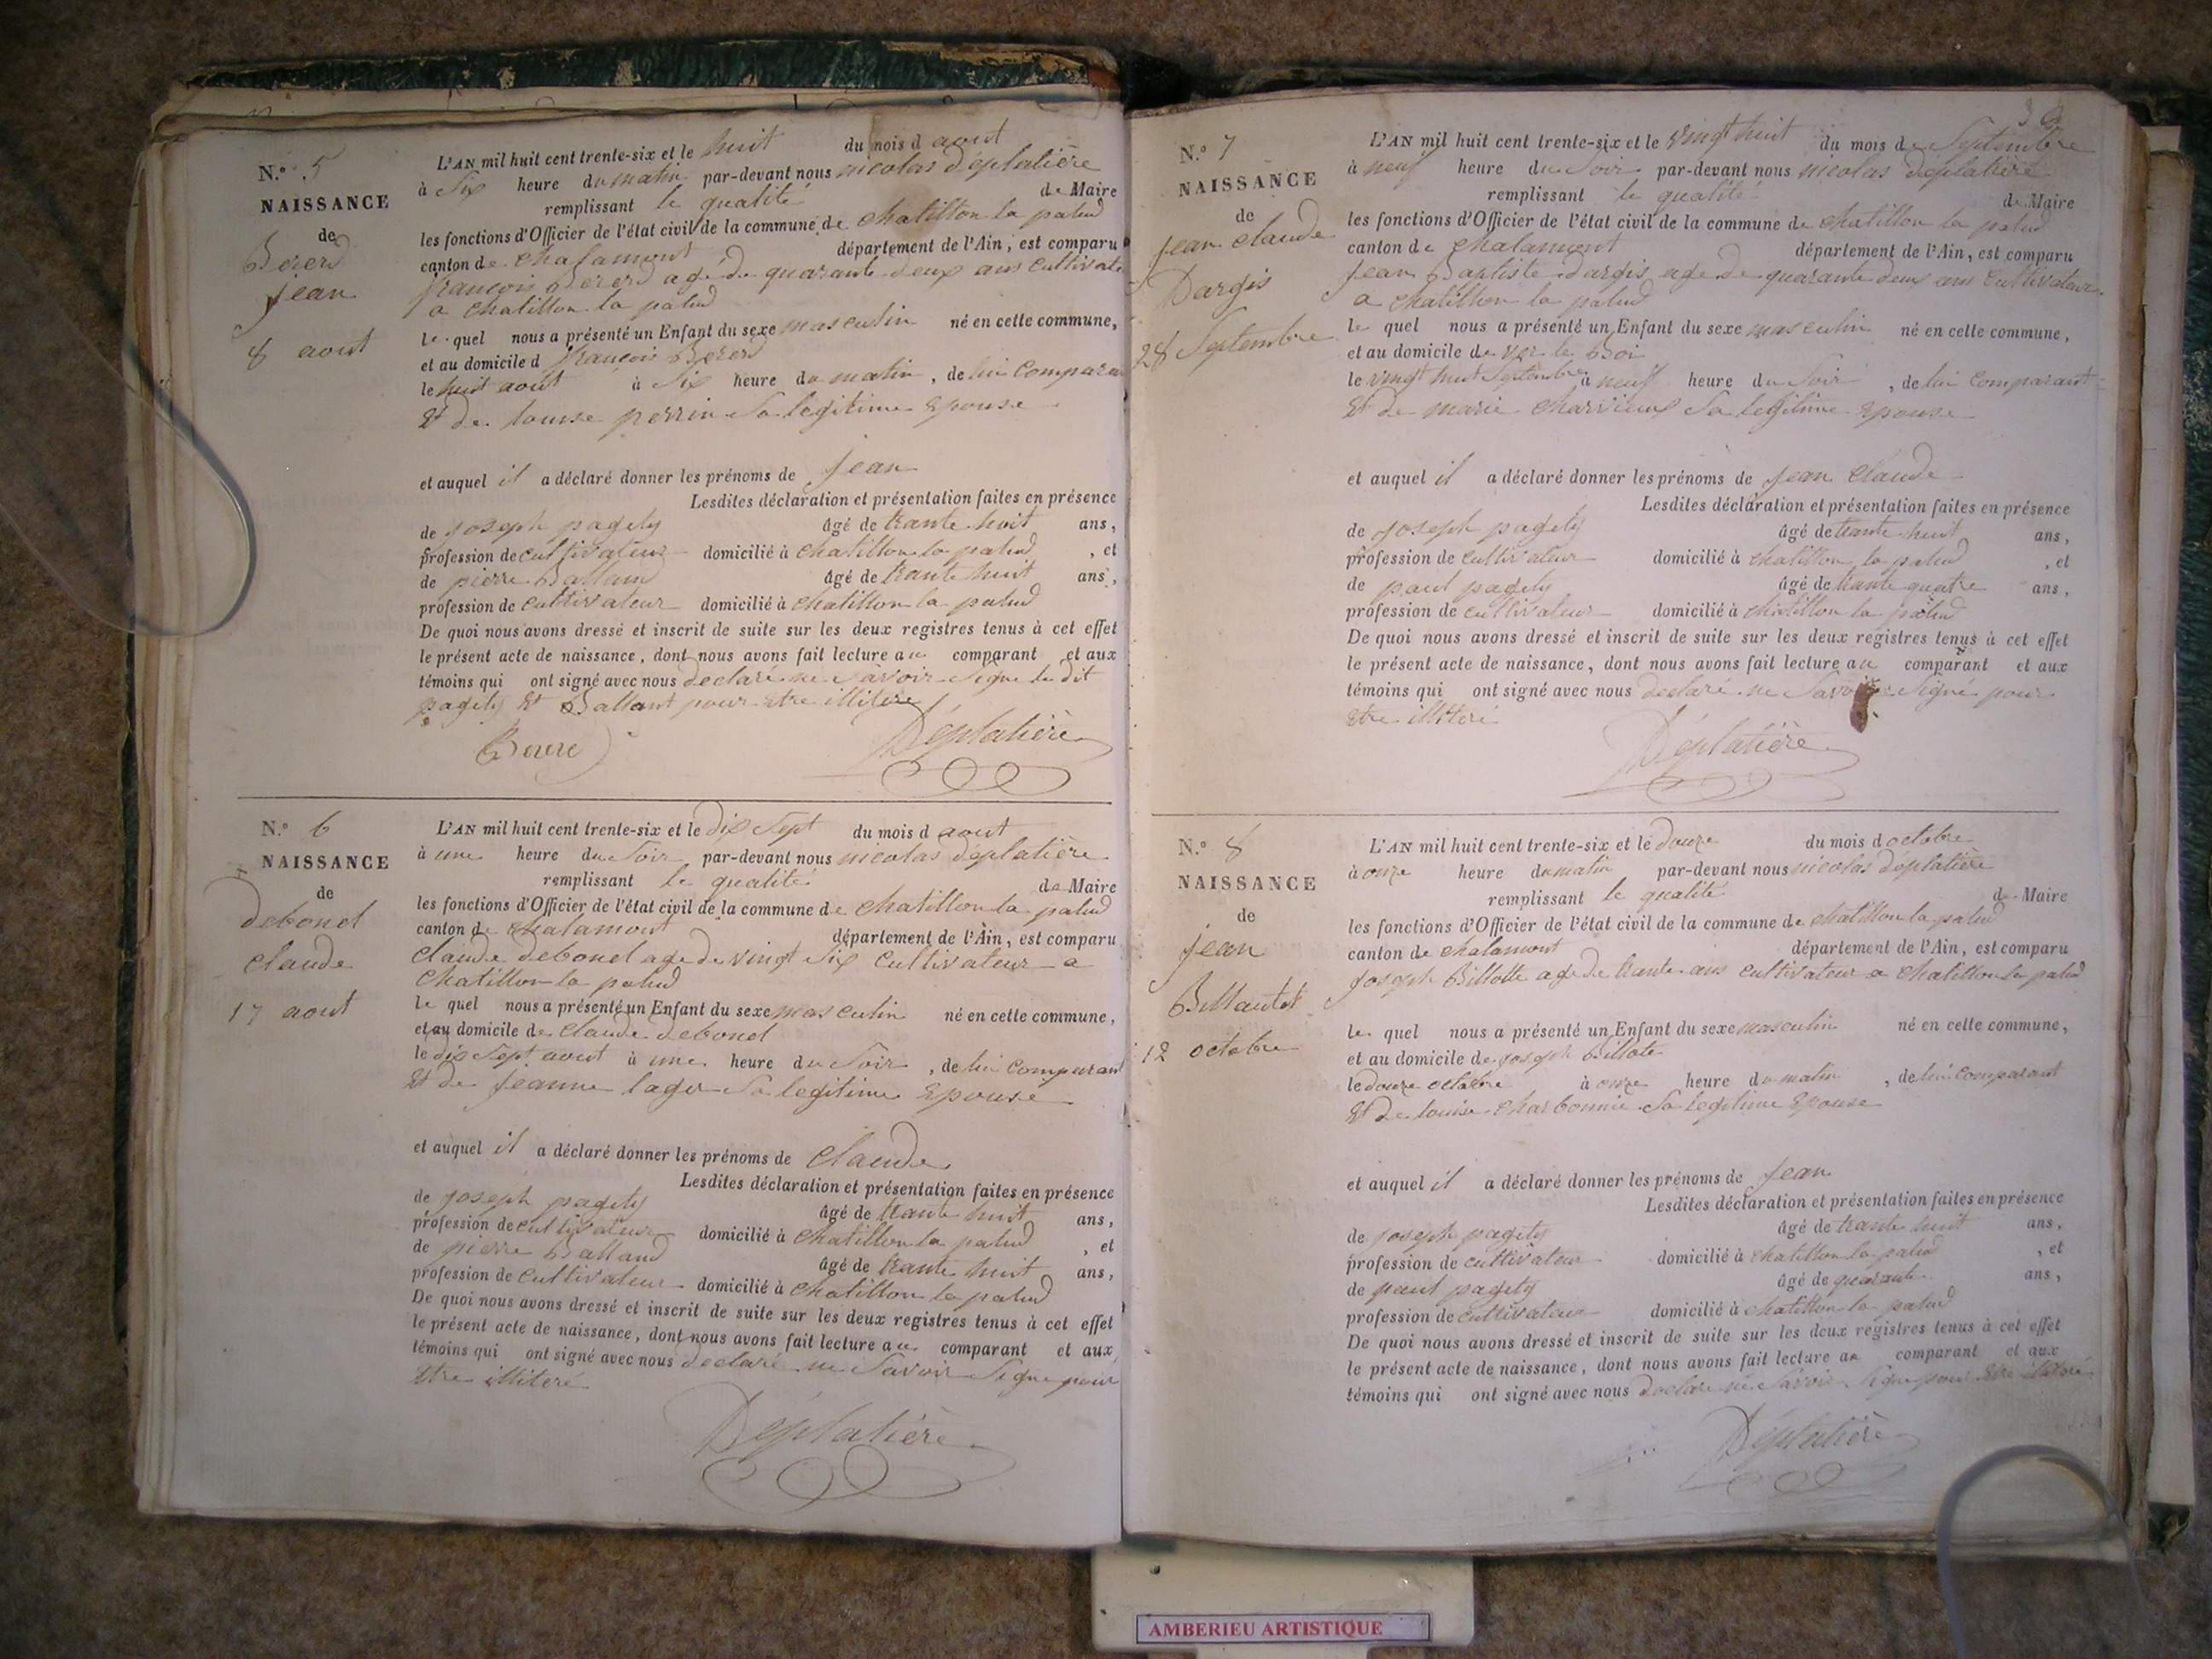 N.° 5
NAISSANCE
de
Bererd
Jean
8 aout
L'AN mil huit cent trente-six et le huit du mois d aout
à Six heure du matin par-devant nous nicolas Déplatière
remplissant le qualité de Maire
les fonctions d'Officier de l'état civil de la commune de chatillon la palud
canton de chalamont département de l'Ain, est comparu
françois Bererd agé de quarante deux ans cultivate
a chatillon la palud
le quel nous a présenté un Enfant du sexe masculin né en cette commune,
et au domicile d françois Bererd
le huit août à Six heure du matin, de lui Compara
Et de louise perrin Sa legitime Epouse
et auquel il a déclaré donner les prénoms de Jean
Lesdites déclaration et présentation faites en présence
de joseph pagety âgé de trante huit ans,
profession de cultivateur domicilié à chatillon la palud, et
de pierre Balland âgé de trante huit ans,
profession de cultivateur domicilié à chatillon la palud
De quoi nous avons dressé et inscrit de suite sur les deux registres tenus à cet effet
le présent acte de naissance, dont nous avons fait lecture au comparant et aux
témoins qui ont signé avec nous declaré ne Savoir Signe le dit
pagety Et Balland pour Etre illitere
Déplatière
N.° 6
NAISSANCE
de
Debonel
claude
17 aout
L'AN mil huit cent trente-six et le dix Sept du mois d aout
à une heure du Soir par-devant nous nicolas Déplatière
remplissant le qualité de Maire
les fonctions d'Officier de l'état civil de la commune de chatillon la palud
canton de chalamont département de l'Ain, est comparu
claude debonel age de vingt Six cultivateur a
chatillon la palud
le quel nous a présenté un Enfant du sexe masculin né en cette commune,
et au domicile de claude debonel
le dix Sept aout à une heure du Soir, de lui Comparant
Et de jeanne lager Sa legitime Epouse
et auquel il a déclaré donner les prénoms de claude
Lesdites déclaration et présentation faites en présence
de joseph pagety âgé de trante huit ans,
profession de cultivateur domicilié à chatillon la palud, et
de pierre Balland âgé de trante huit ans,
profession de cultivateur domicilié à chatillon la palud
De quoi nous avons dressé et inscrit de suite sur les deux registres tenus à cet effet
le présent acte de naissance, dont nous avons fait lecture au comparant et aux
témoins qui ont signé avec nous declaré ne Savoir Signe pour
Etre illiteré
Déplatière
N.° 7
NAISSANCE
de
jean claude
Dargis
28 Septembre
L'AN mil huit cent trente-six et le vingt huit du mois de Septembre
à neuf heure du Soir par-devant nous nicolas Déplatière
remplissant le qualité de Maire
les fonctions d'Officier de l'état civil de la commune de chatillon la palud
canton de chalamont département de l'Ain, est comparu
jean Baptiste dargis age de quarante deux ans cultivateur
a chatillon la palud
le quel nous a présenté un Enfant du sexe masculin né en cette commune,
et au domicile de ver le Boi
le vingt huit Septembre à neuf heure du Soir, de lui comparant
Et de marie charvieux Sa legitime Epouse
et auquel il a déclaré donner les prénoms de jean claude
Lesdites déclaration et présentation faites en présence
de joseph pagety âgé de trante huit ans,
profession de cultivateur domicilié à chatillon la palud, et
de paul pagety âgé de trante quatre ans,
profession de cultivateur domicilié à chatillon la palud
De quoi nous avons dressé et inscrit de suite sur les deux registres tenus à cet effet
le présent acte de naissance, dont nous avons fait lecture au comparant et aux
témoins qui ont signé avec nous declaré ne Savoir Signé pour
Etre illiteré
Déplatière
N.° 8
NAISSANCE
de
jean
Billautet
12 octobre
L'AN mil huit cent trente-six et le douze du mois d octobre
à onze heure du matin par-devant nous nicolas déplatière
remplissant le qualité de Maire
les fonctions d'Officier de l'état civil de la commune de chatillon la palud
canton de chalamont département de l'Ain, est comparu
joseph Billotte age de trante ans cultivateur a chatillon la palud
le quel nous a présenté un Enfant du sexe masculin né en cette commune,
et au domicile de joseph Billote
le douze octobre à onze heure du matin, de lui comparant
Et de louise charbonnie Sa legitime Epouse
et auquel il a déclaré donner les prénoms de jean
Lesdites déclaration et présentation faites en présence
de joseph pagety âgé de trante huit ans,
profession de cultivateur domicilié à chatillon la palud, et
de paul pagety âgé de quarante ans,
profession de cultivateur domicilié à chatillon la palud
De quoi nous avons dressé et inscrit de suite sur les deux registres tenus à cet effet
le présent acte de naissance, dont nous avons fait lecture au comparant et aux
témoins qui ont signé avec nous declare ne Savoir Signe pour Etre illiteré
Déplatière
AMBERIEU ARTISTIQUE